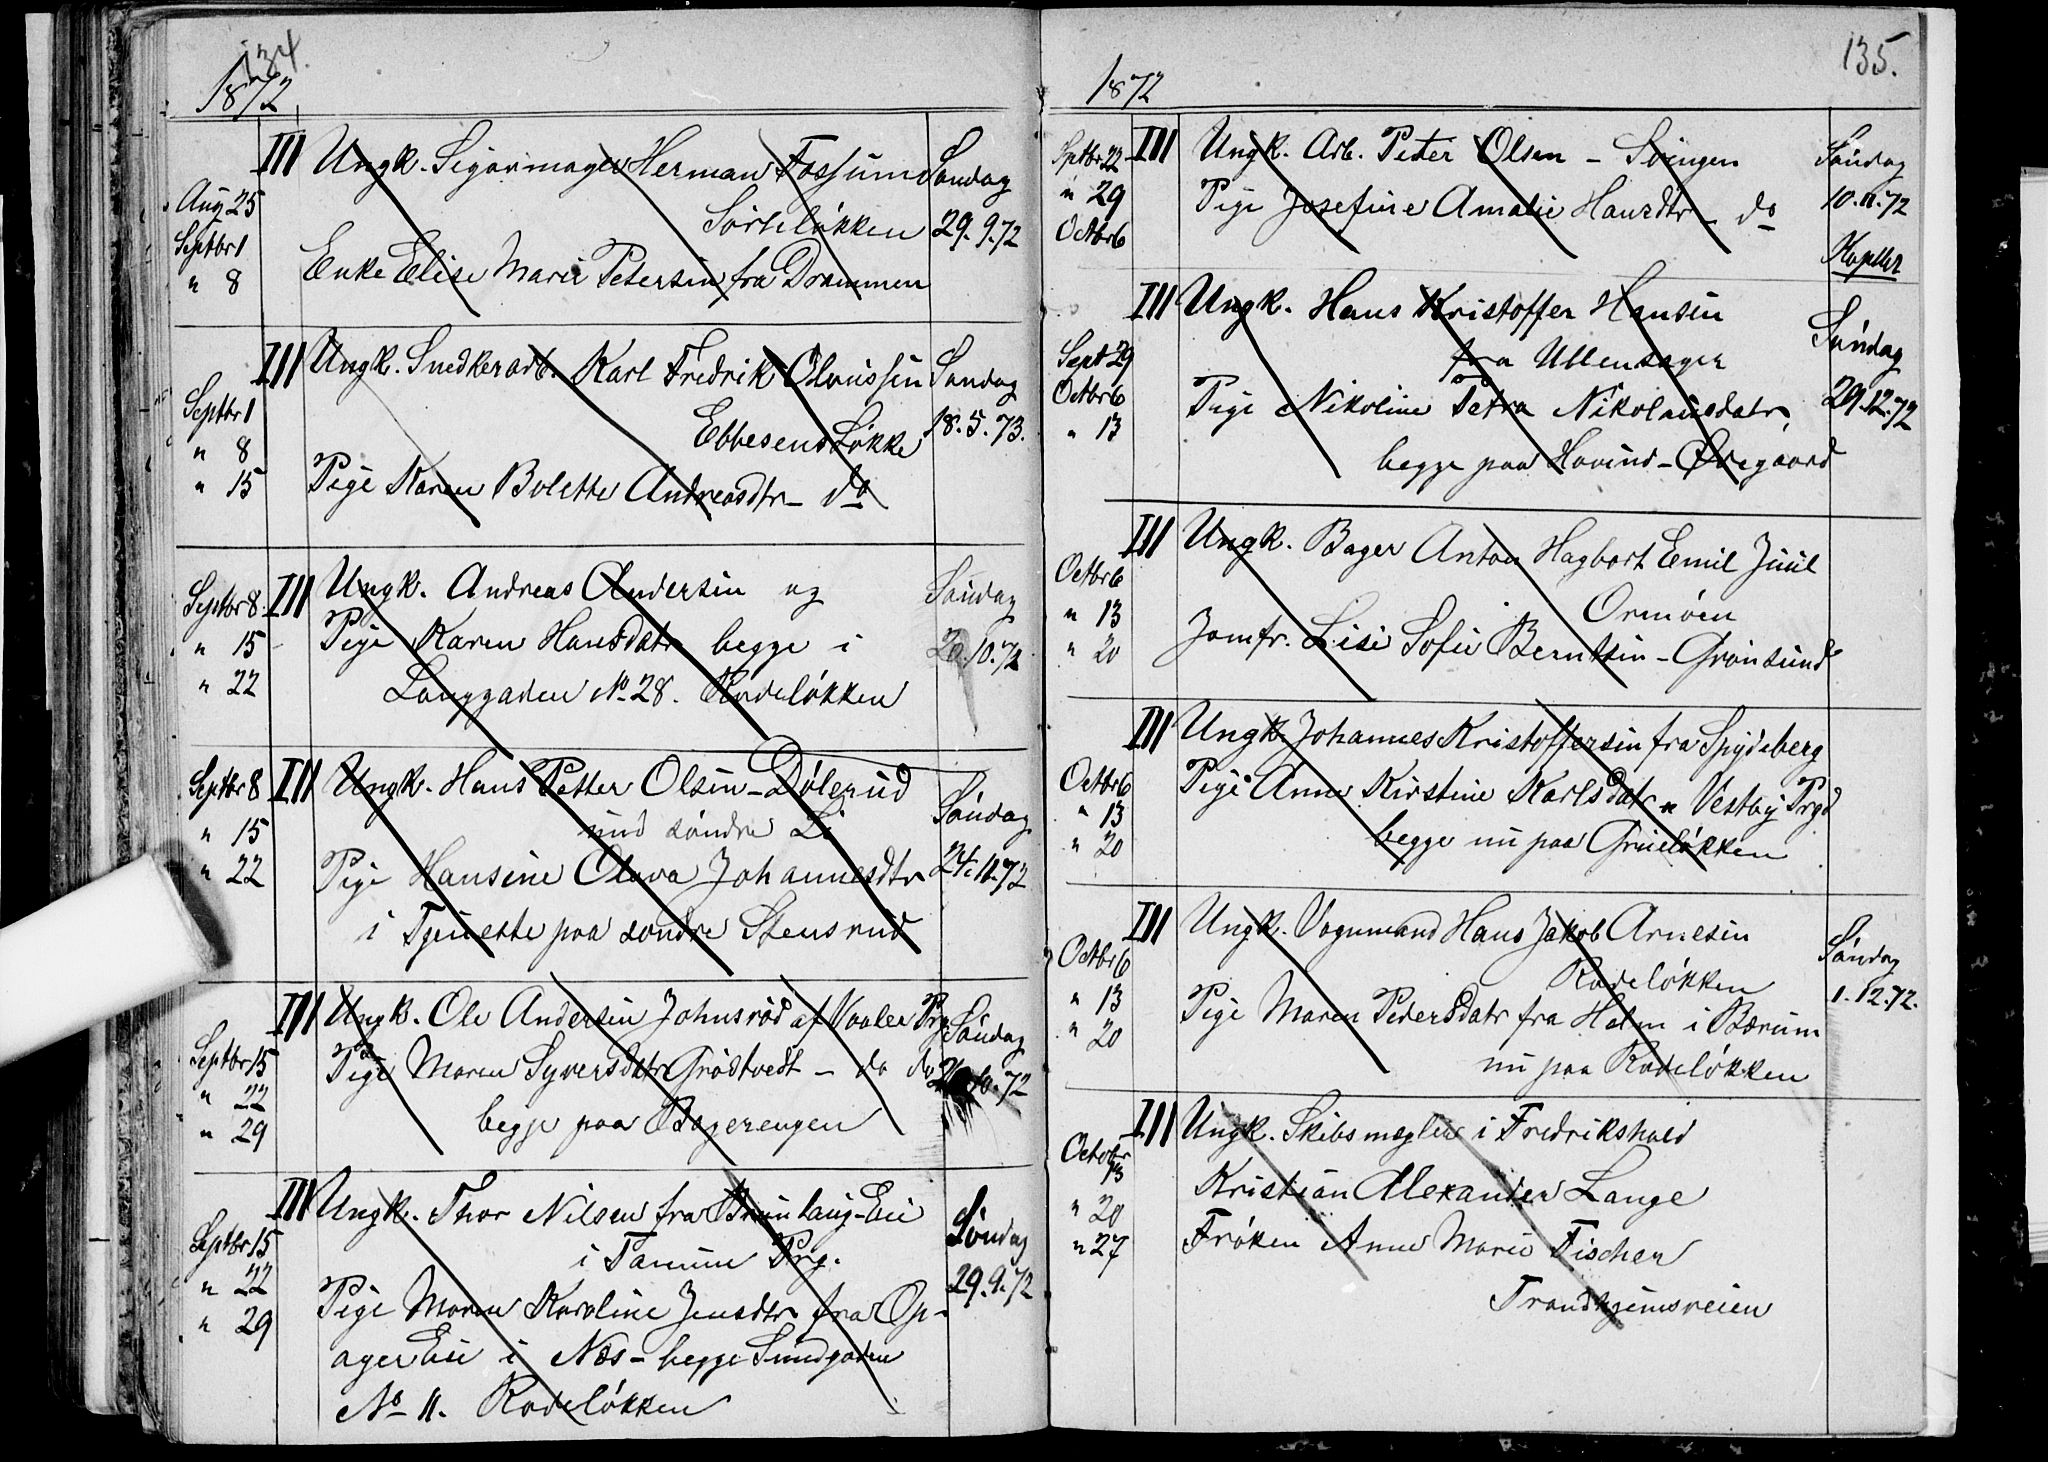 134.
1872
III Ungk. Sigarmager Herman Fossum Søndag
Aug 25
Sørliløkken 29.9.72
Septbr 1
" 8 Enke Elise Marie Petersen fra Drammen
III Ungk. Snedkerarb. Karl Fredrik Olaussen Søndag
Septbr 1
Ebbesens Løkke 18.5.73.
" 8
" 15 Pige Karen Bolette Andreasdtr - do
Septbr 8. III Ungk. Andreas Andersen og Søndag
" 15 Pige Karen Hansdatr begge i 20.10.72
" 22 Langgaden No 28. Rodeløkken
Septbr 8 III Ungk. Hans Petter Olsen - Dølerud Søndag
" 15 und søndre Li
" 22 Pige Hansine Olava Johannesdtr 24.11.72
i Tjeneste paa søndre Stensrud
III Ungk. Ole Andersen Johnsrød af Vaaler Prg. Søndag
Septbr 15 Pige Maren Syversdatr Grødtvedt - do do 10.72
" 22
" 29 begge paa Bagerengen
III Ungk. Thor Nilsen fra Eie Søndag
Septbr 15 i Tanum Prg.
" 22 29.9.72
" 29 Pige Maren Karoline Jensdtr fra Op-
ager Eie i Næs - begge Sundgaden
No 11. Rodeløkken
135.
1872
Sptbr 22 III Ungk. Arb. Peter Olsen - Svingen Søndag
" 29 Pige Josefine Amalie Hansdtr - do 10.11.72
Octbr 6 Kapellet
III Ungk. Hans Kristoffer Hansen
Sept 29 fra Ullensager Søndag
Octbr 6 Pige Nikoline Petra Nikolausdatr, 29.12.72
" 13 begge paa Hovind - Øvegaard
III Ungk. Bager Anton Hagbart Emil Juul
Octbr 6
" 13 Ormøen
" 20 Jomfr. Lise Sofie Berntsen - Grønsund
III Ungk. Johannes Kristoffersen fra Spydeberg
Octbr 6 Pige Anne Kirstine Karlsdatr " Vestby Prgd
" 13
" 20 begge nu paa Grüneløkken
III Ungk. Vognmand Hans Jakob Arnesen
Octbr 6 Rodeløkken Søndag
" 13 Pige Maren Pedersdatr fra Holm i Bærum 1.12.72.
" 20 nu paa Rodeløkken
III Ungk. Skibsmægler i Fredrikshald
Octobr
13 Kristian Alexander Lange
" 20
" 27 Frøken Anne Marie Fischer
Trondhjemsveien